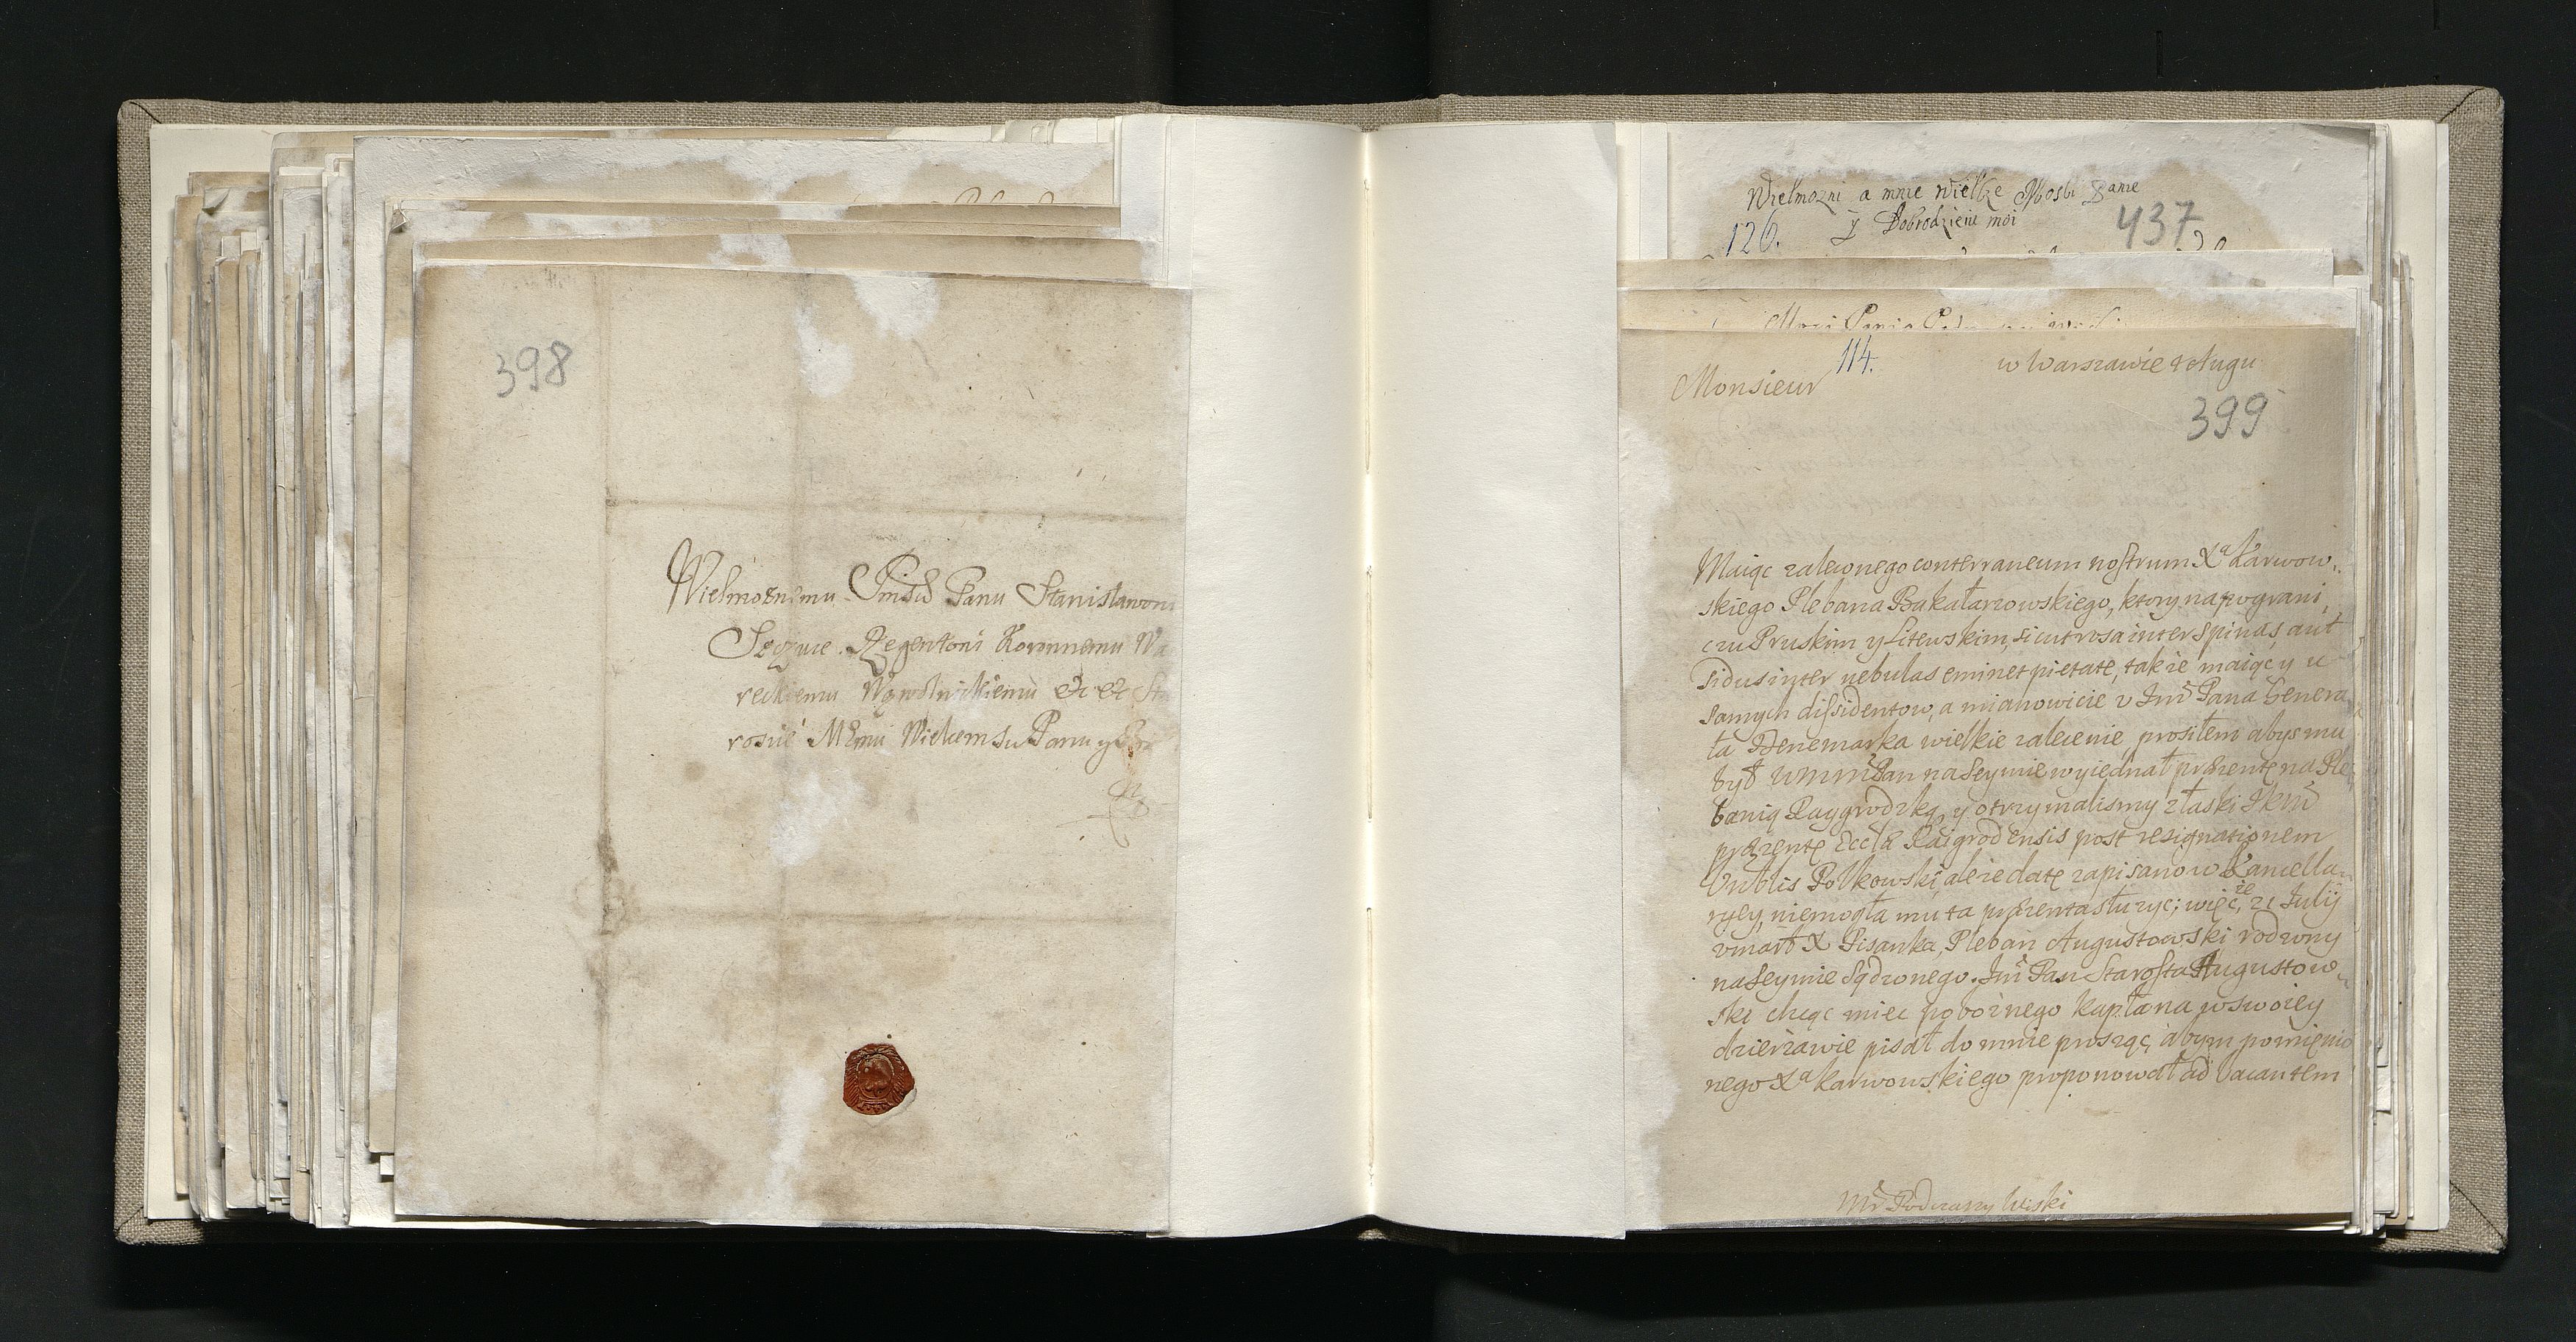 398
Wielmoznemu Panu Stanisławowi
Szczuce Regentowi Koronnemu
reckiemu Wąwolnickiemu
Panu y
Wielmozni a mnie Wielce Mosci Panie
y Dobrodzieiu moi
126.
437
114.
w Warszawie 2 Augu
Monsieur
399
Maiąc zaleconego conterraneum nostrum Xa Karwow
skiego Plebana Bakałarzowskiego, ktory na pograni
czu Pruskim y Litewskim, sicut rosa inter spinas, aut
sidus inter nebulas eminet pietate, takze maiąc y u
samych dissidentow, a mianowicie v Pana Genera
ła Denemarka wielkie zalecenie, prosiłem abys mu
był Pan na Seymie wyiednał præzentę na Ple
banią Raygrodzką, y otrzymalismy z łaski
præzentę Raigrodensis post resignationem
ale ze datę zapisano w Kancella
ryey, niemogła mu ta præzenta słuzyc; więc, ze 21 Julij
vmarł X Pisanka, Pleban Augustowski rodzony
na Seymie sądzonego. Pan Starosta Augustow
ski chcąc miec poboznego kapłana w swoiey
dzierzawie pisał do mnie prosząc, abym pomienio
nego Xa Karwowskiego proponował ad vacantem
Podczaszy Wiski